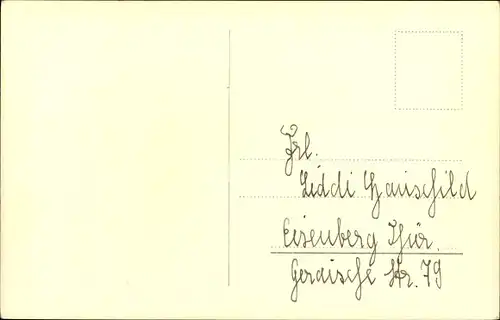 Frl.
Liddi Hauschild
Eisenberg Thür.
Geraische Str. 79